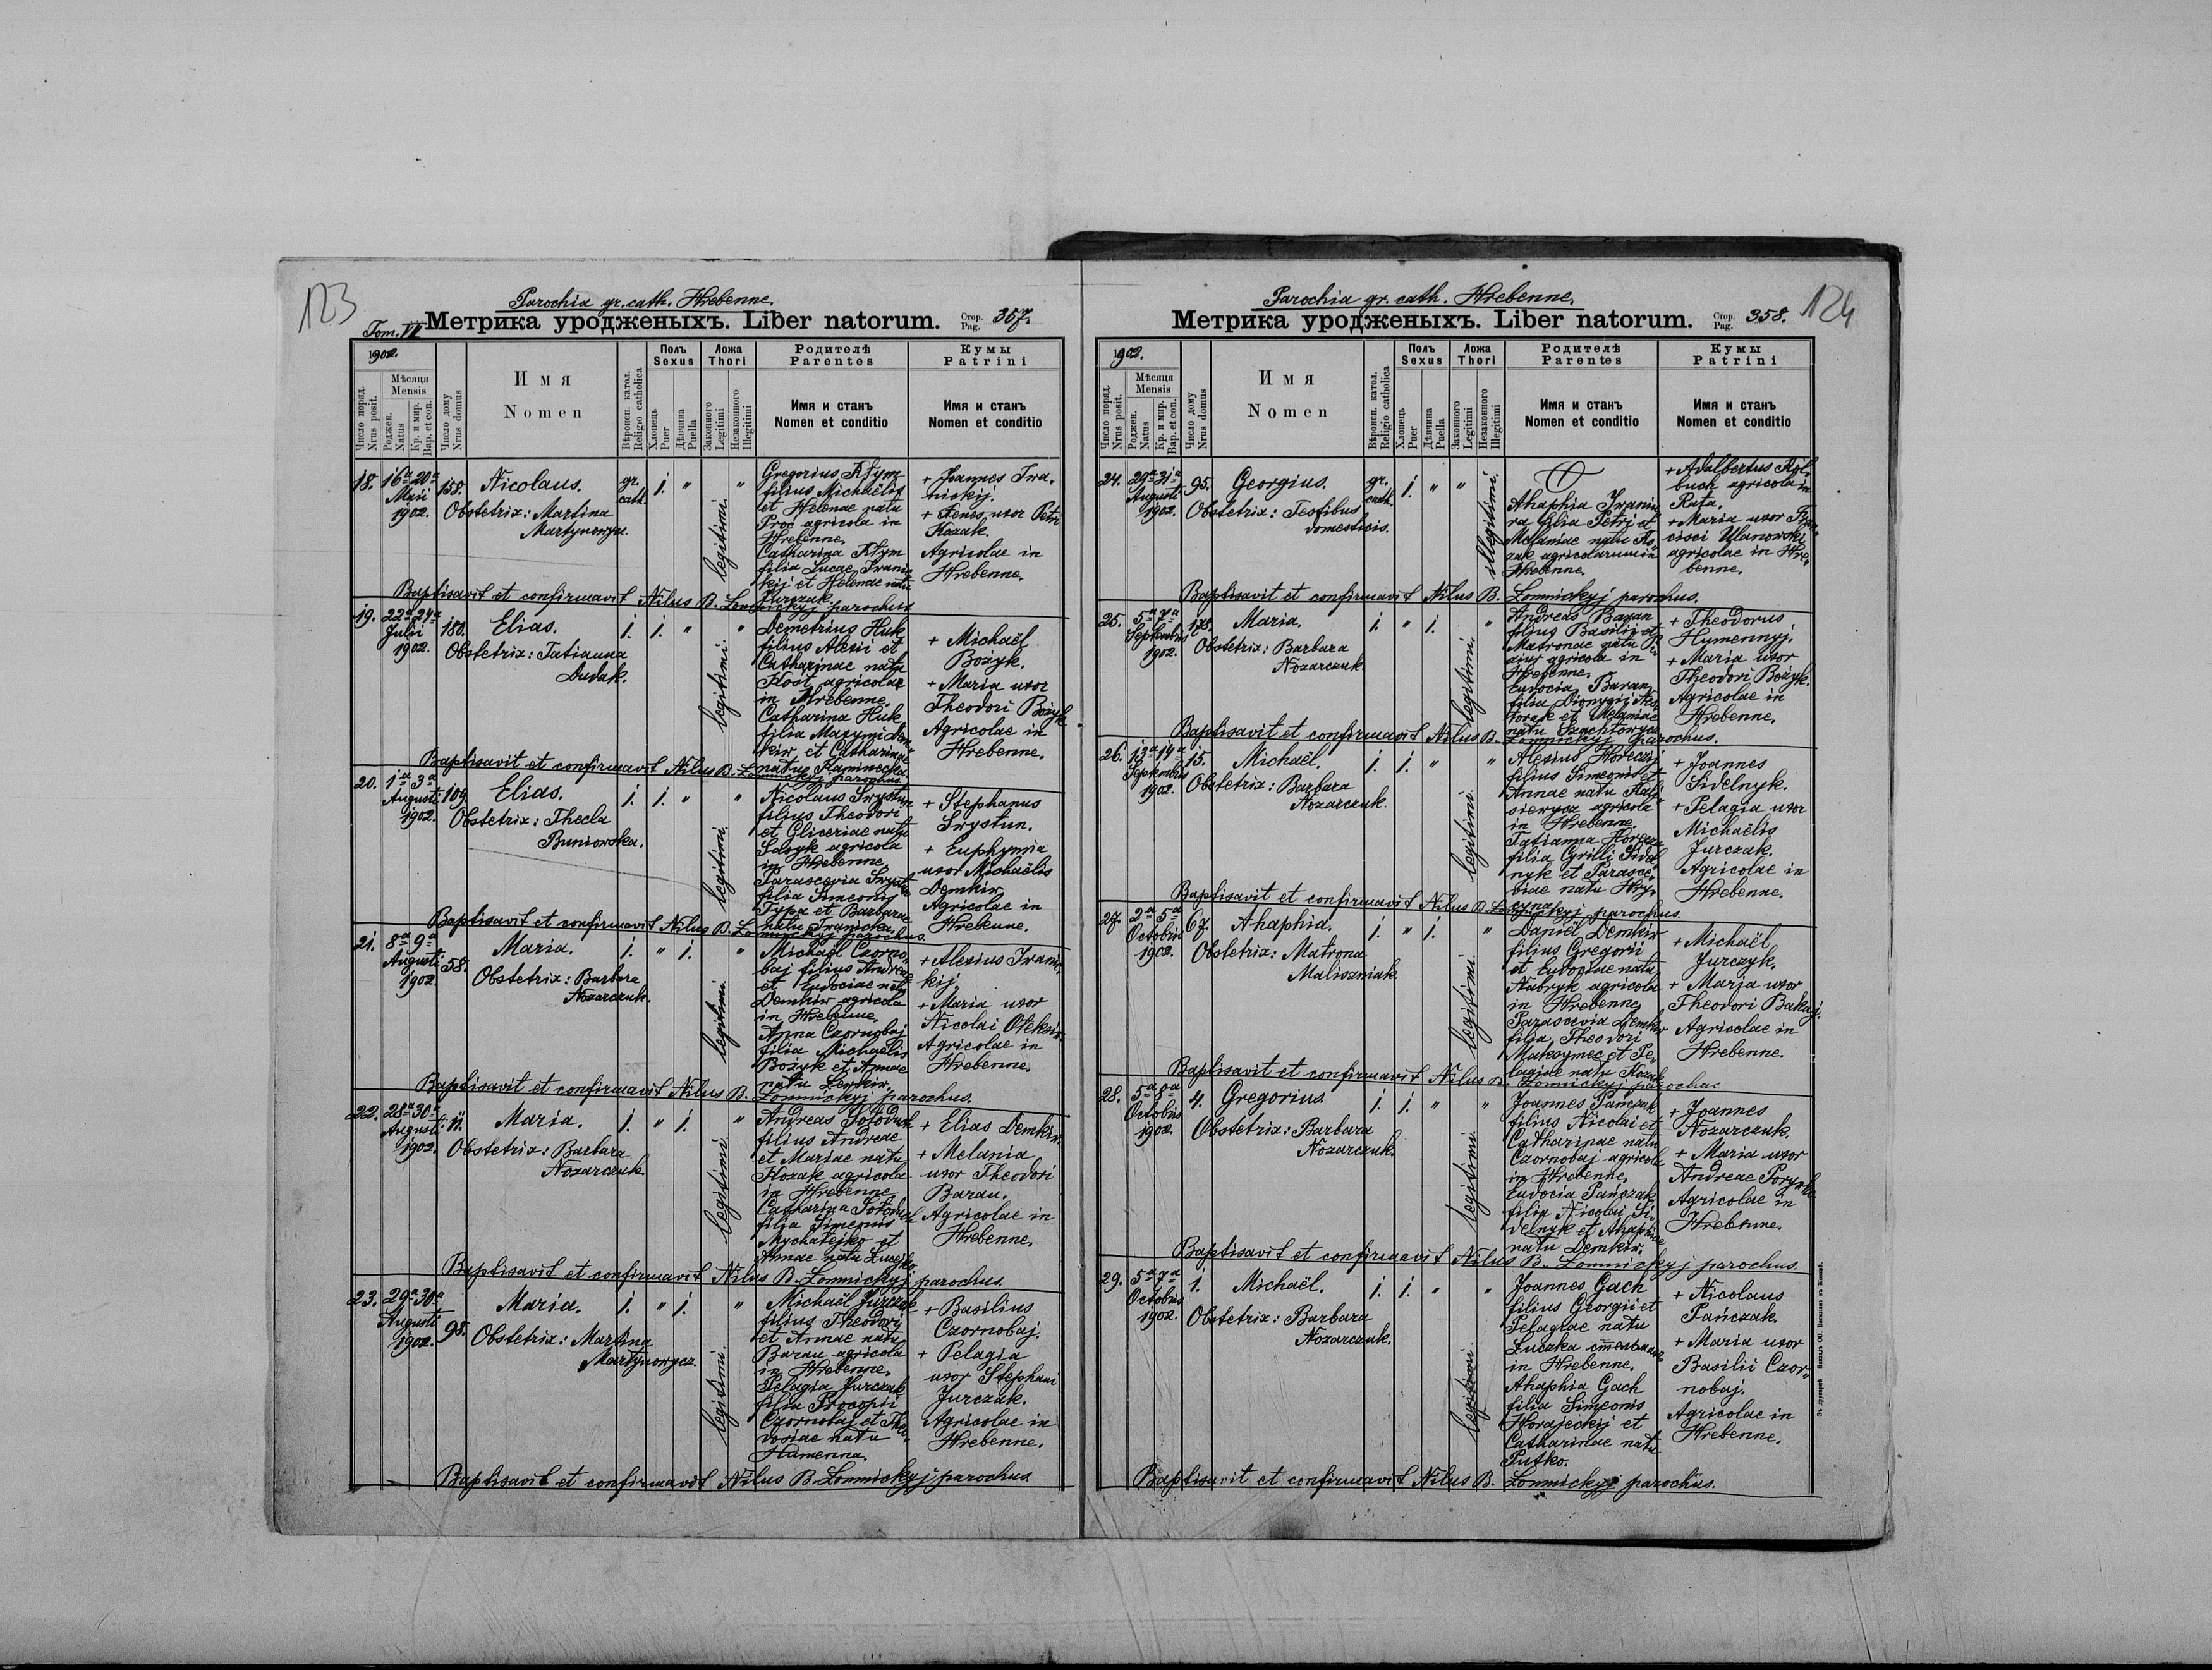 123
Parochia gr. cath. Hrebenne.
Tom. VII
Метрика уродженыхъ. Liber natorum.
Стор. Pag. 357.
1902.
Число поряд. Nrus posit.
Мѣсяця Mensis
Роджен. Natus
Кр. и мир. Bap. et con.
Число дому Nrus domus
Имя
Nomen
Вѣроисп. катол. Religio catholica
Полъ Sexus
Хлопець Puer
Дѣвчина Puella
Ложа Thori
Законного Legitimi
Незаконного Illegitimi
Родителѣ Parentes
Имя и станъ
Nomen et conditio
Кумы Patrini
Имя и станъ
Nomen et conditio
18. 16a 20a Maii 1902. 158. Nicolaus. gr. cath. 1. " legitimi. "
Obstetrix: Martina
Martynowycz.
Gregorius Kłym
filius Michaëlis
et Helenae natu
Proc agricola in
Hrebenne.
Catharina Kłym
filia Lucae Iwanic
kij et Helenae natu
Jurczak.
+ Joannes Iwa,
nickij.
+ Xenes uxor Petri
Kozak.
Agricolae in
Hrebenne.
Baptisavit et confirmavit Nilus B. Łomnickyj parochus
19. 22a 24a Julii 1902. 180. Elias. 1. 1. " legitimi. "
Obstetrix: Tatianna
Dudak.
Demetrius Huk
filius Alexii et
Catharinae natu
Kost agricolae
in Hrebenne.
Catharina Huk
filia Maxymi Dem
kiw et Catharinae
natu Kaminecka
+ Michaël
Bożyk.
+ Maria uxor
Theodori Bożyk
Agricolae in
Hrebenne.
Baptisavit et confirmavit Nilus B. Łomnickyj parochus.
20. 1a 3a Augusti 1902. 109. Elias. 1. 1. " legitimi. "
Obstetrix: Thecla
Buniowska.
Nicolaus Swystun
filius Theodori
et Gliceriae natu
Sasyk agricola
in Hrebenne.
Parascevia Swystun
filia Simeonis
Typa et Barbarae
natu Iwanicka.
+ Stephanus
Swystun.
+ Euphymia
uxor Michaëlis
Demkiw
Agricolae in
Hrebenne.
Baptisavit et confirmavit Nilus B. Łomnickyj parochus.
21. 8a 9a Augusti 1902. 58. Maria. 1. " 1. legitimi. "
Obstetrix: Barbara
Nozarczuk.
Michaël Czorno,
baj filius Andreae
et Eudociae natu
Demkiw agricola
in Hrebenne.
Anna Czornobaj
filia Michaëlis
Bożyk et Annae
natu Lewkiw.
+ Alexius Iwanic,
kij.
+ Maria uxor
Nicolai Ołeksiw
Agricolae in
Hrebenne.
Baptisavit et confirmavit Nilus B. Łomnickyj parochus.
22. 28a 30a Augusti 1902. 11. Maria. 1. " 1. legitimi. "
Obstetrix: Barbara
Nozarczuk.
Andreas Sołoduk
filius Andreae
et Mariae natu
Kozak agricola
in Hrebenne
Catharina Sołoduk
filia Simeonis
Mychałejko et
Annae natu Lucejko.
+ Elias Demkiw.
+ Melania
uxor Theodori
Baran.
Agricolae in
Hrebenne.
Baptisavit et confirmavit Nilus B. Łomnickyj parochus.
23. 29a 30a Augusti 1902. 98. Maria. 1. " 1. legitimi. "
Obstetrix: Martina
Martynowycz.
Michaël Jurczak
filius Theodori
et Annae natu
Baran agricola
in Hrebenne.
Pelagia Jurczak
filia Procopii
Czornobaj et Theo,
dosiae natu
Humenna.
+ Basilius
Czornobaj.
+ Pelagia
uxor Stephani
Jurczak.
Agricolae in
Hrebenne.
Baptisavit et confirmavit Nilus B. Łomnickyj parochus.
124
Parochia gr. cath. Hrebenne.
Метрика уродженыхъ. Liber natorum.
Стор. Pag. 358.
1902.
Число поряд. Nrus posit.
Мѣсяця Mensis
Роджен. Natus
Кр. и мир. Bap. et con.
Число дому Nrus domus
Имя
Nomen
Вѣроисп. катол. Religio catholica
Полъ Sexus
Хлопець Puer
Дѣвчина Puella
Ложа Thori
Законного Legitimi
Незаконного Illegitimi
Родителѣ Parentes
Имя и станъ
Nomen et conditio
Кумы Patrini
Имя и станъ
Nomen et conditio
24. 29a 31a Augusti 1902. 95. Georgius. gr. cath. 1. " " illegitimi.
Obstetrix: Testibus
domesticis.
Ahaphia
filia Petri et
Melaniae natu Ko,
zak agricolarum in
Hrebenne.
+ Adalbertus
agricola in
Rata.
+ Maria uxor
Ulanowski
agricolae in Hre,
benne.
Baptisavit et confirmavit Nilus B. Łomnickyj parochus.
25. 5a 7a Septembris 1902. 128. Maria. 1. " 1. legitimi. "
Obstetrix: Barbara
Nozarczuk
Andreas Baran
filius Basilii et
Matronae natu
agricola in
Hrebenne.
Eudocia Baran
filia Dionysii
et Melaniae
natu Szachtowycz
+ Theodorus
Humennyj.
+ Maria uxor
Theodori Bożyk.
Agricolae in
Hrebenne.
Baptisavit et confirmavit Nilus B. Łomnickyj parochus.
26. 13a 14a Septembris 1902. 15. Michaël. 1. 1. " legitimi. "
Obstetrix: Barbara
Nozarczuk.
Alexius Horeczij
filius Simeonis et
Annae natu
agricola
in Hrebenne.
Tatianna
filia Cyrilli Sidel,
nyk et Parasce,
viae natu Hry,
cyna
+ Joannes
Sidelnyk.
+ Pelagia uxor
Michaëlis
Jurczak.
Agricolae in
Hrebenne.
Baptisavit et confirmavit Nilus B. Łomnickyj parochus.
27. 2a 5a Octobris 1902. 67. Ahaphia. 1. " 1. legitimi. "
Obstetrix: Matrona
Maliszniak.
Daniël Demkiw
filius Gregorii
et Eudociae natu
Habryk agricola
in Hrebenne
Parascevia Demkiw
filia Theodori
Maksymec et Pe,
lagiae natu Kozak
+ Michaël
Jurczyk.
+ Maria uxor
Theodori Bakaj.
Agricolae in
Hrebenne.
Baptisavit et confirmavit Nilus B. Łomnickyj parochus
28. 5a 8a Octobris 1902. 4. Gregorius. 1. 1. " legitimi. "
Obstetrix: Barbara
Nozarczuk.
Joannes Pańczak
filius Nicolai et
Catharinae natu
Czornobaj agricola
in Hrebenne.
Eudocia Pańczak
filia Nicolai Si,
delnyk et Ahaphiae
natu Demkiw.
+ Joannes
Nozarczuk.
+ Maria uxor
Andreae
Agricolae in
Hrebenne.
Baptisavit et confirmavit Nilus B. Łomnickyj parochus.
29. 5a 7a Octobris 1902. 1. Michaël. 1. 1. " legitimi. "
Obstetrix: Barbara
Nozarczuk.
Joannes Gach
filius Georgii et
Pelagiae natu
Łuczka
in Hrebenne.
Ahaphia Gach
filia Simeonis
Horajeckij et
Catharinae natu
Putko.
+ Nicolaus
Pańczak.
+ Maria uxor
Basilii Czor,
nobaj.
Agricolae in
Hrebenne.
Baptisavit et confirmavit Nilus B. Łomnickyj parochus.